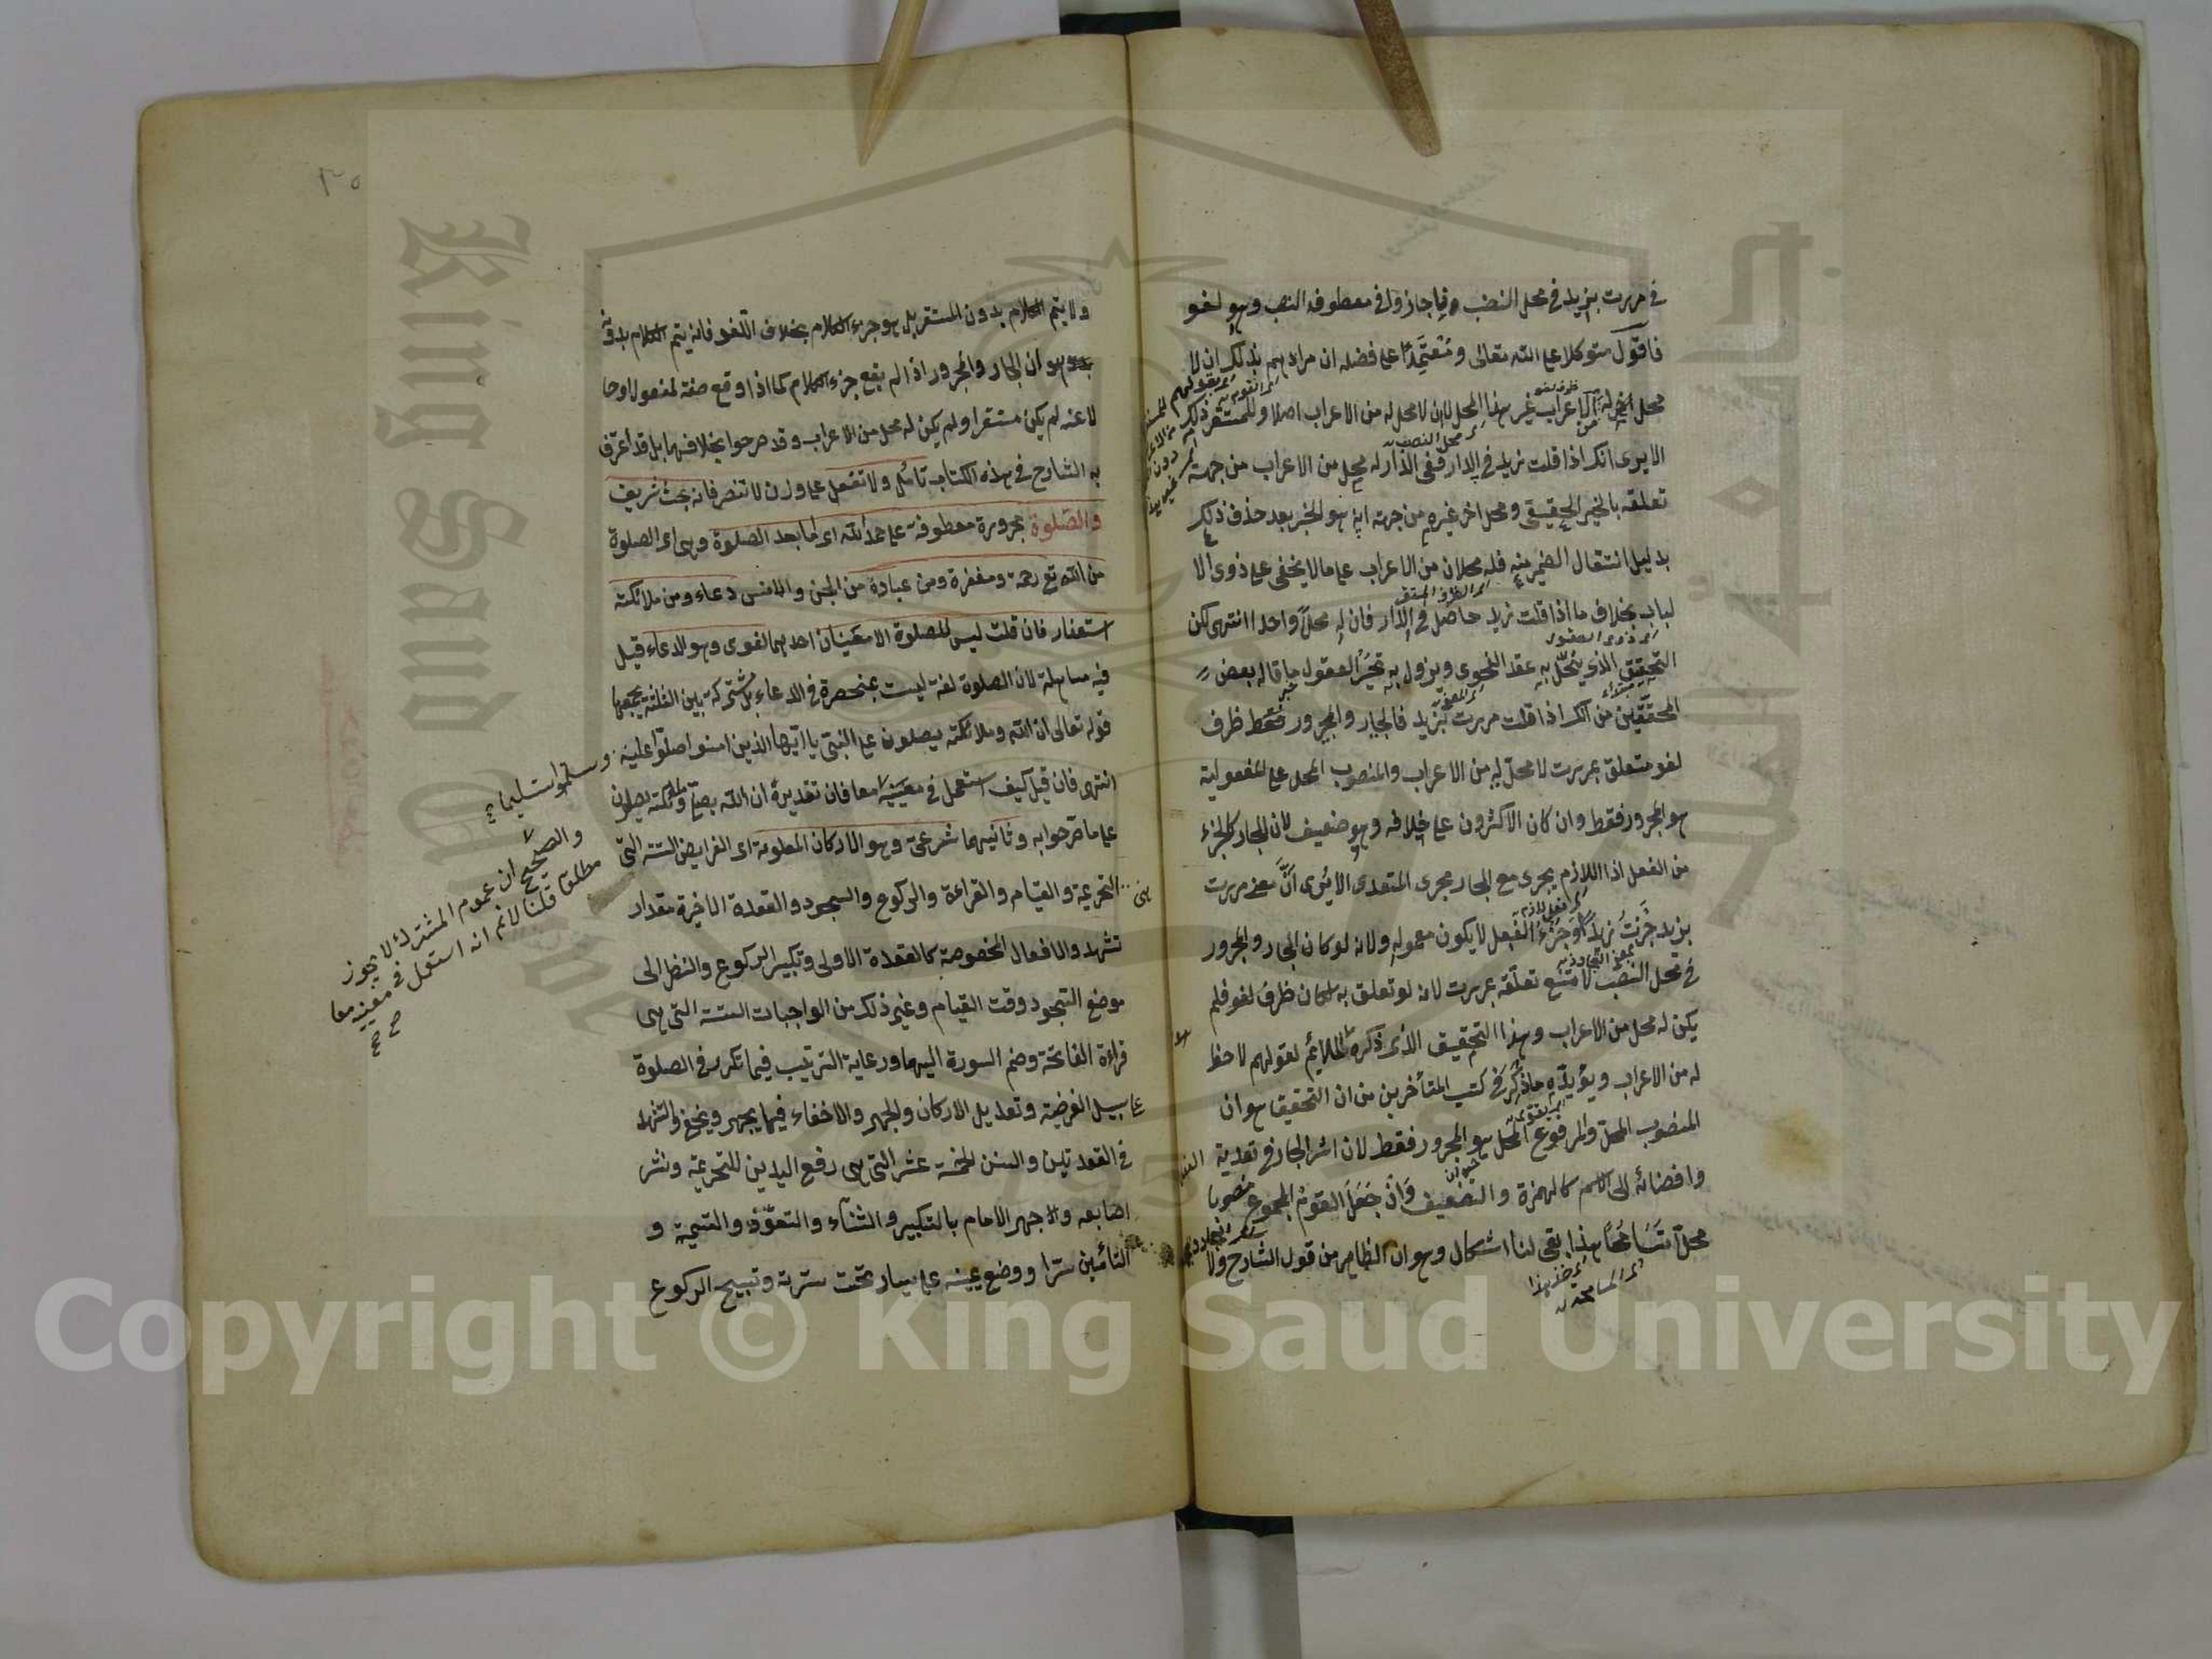 في مررت بزيد في محل النصب ولذا جازوا في معطوفه النصب وهو لغو
فاقول متوكلا على الله تعالى ومعتمدا على فضله ان مرادهم بذلك ان لا
محل اخر له من الاعراب غير هذا المحل لا ان لا محل له من الاعراب اصلا وللمستقر ذلك
الا يرى انك اذا قلت زيد في الدار ففي الدار له محل من الاعراب من جهة
تعلقه بالخبر الحقيقي ومحل اخر غيره من جهة انه هو الخبر بعد حذف ذلك
بدليل انتقال الضمير منه فله محلان من الاعراب على ما لا يخفى على ذوى الا
لباب بخلاف ما اذا قلت زيد حاصل في الدار فان له محلا واحدا انتهى لكن
التحقيق الذي ينحل به عقد النحوى ويزول به تحير العقول ما قاله بعض
المحققين من انك اذا قلت مررت بزيد فالجار والمجرور فقط ظرف
لغو متعلق بمررت لا محل له من الاعراب والمنصوب المحل على المفعولية
هو المجرور فقط وان كان الاكثرون على خلافه وهو ضعيف لان الجار كالجزء
من الفعل اذ اللازم يجرى مع الجار مجرى المتعدى الا يرى ان معنى مررت
بزيد جزت زيدا وجزء الفعل لا يكون معموله ولانه لو كان الجار والمجرور
في محل النصب لامتنع تعلقه بمررت لانه لو تعلق به لكان ظرف لغو فلم
يكن له محل من الاعراب وهذا التحقيق الذى ذكره الملائم لقولهم لا حظ
له من الاعراب ويؤيده ما ذكر في كتب المتأخرين من ان التحقيق هو ان
المنصوب المحل والمرفوع المحل هو المجرور فقط لان اثر الجار في تعدية
وافضائه الى الاسم كالهمزة والتضعيف وان جعل القوم المجموع منصوبا
محلا تسامحا هذا بقى لنا اشكال وهو ان الظاهر من قول الشارح ولا
ولا يتم الكلام بدون المستقر بل هو جزء الكلام بخلاف اللغو فانه يتم الكلام بدونه
هو ان الجار والمجرور اذا لم يقع جزء الكلام كما اذا وقع صفة لمفعول او حا
لا عنه لم يكن مستقرا ولم يكن له محل من الاعراب وقد صرحوا بخلافهما بل قد اعترف
به الشارح في هذه الكتاب تأمل ولا تغفل على وزن لا تنصر فانه بحث شريف
والصلوة مجرورة معطوفة على حمد الله اى اما بعد الصلوة وهى اى الصلوة
من الله تع رحمة ومغفرة ومن عبادة من الجن والانس دعاء ومن ملائكته
استغفار فان قلت ليس للصلوة الا معنيان احدهما لغوى وهو الدعاء قيل
فيه مساهلة لان الصلوة لغة ليست بمنحصرة في الدعاء بل مشتركة بين الثلثة يجمعها
قوله تعالى ان الله وملائكته يصلون على النبى يا ايها الذين امنوا صلوا عليه وسلموا تسليما
انتهى فان قيل كيف استعمل في معنييه معا فان تقديره ان الله يصلى وملائكته يصلون
على ما صرحوا به وثانيهما شرعى وهو الاركان المعلومة اى الفرايض الستة التى
هى التحريمة والقيام والقراءة والركوع والسجود والقعدة الاخيرة مقدار
تشهد والافعال المخصوصة كالقعدة الاولى وتكبير الركوع والنظر الى
موضع السجود وقت القيام وغير ذلك من الواجبات الستة التى هى
قراءة الفاتحة وضم السورة اليها ورعاية الترتيب فيما تكرر في الصلوة
على سبيل الفرضية وتعديل الاركان والجهر والاخفاء فيما يجهر ويخفى والتشهد
في القعدتين والسنن الخمسة عشر التى هى رفع اليدين للتحريمة ونشر
اصابعه والا جهر الامام بالتكبير والثناء والتعوذ والتسمية و
التأمين سرا ووضع يمينه على يسار تحت سرته وتسبيح الركوع
والصحيح ان عموم المشترك لا يجوز
مطلقا قلنا لا نم انه استعمل في معنييه معا
صح صح
Copyright © King Saud University
King Saud University